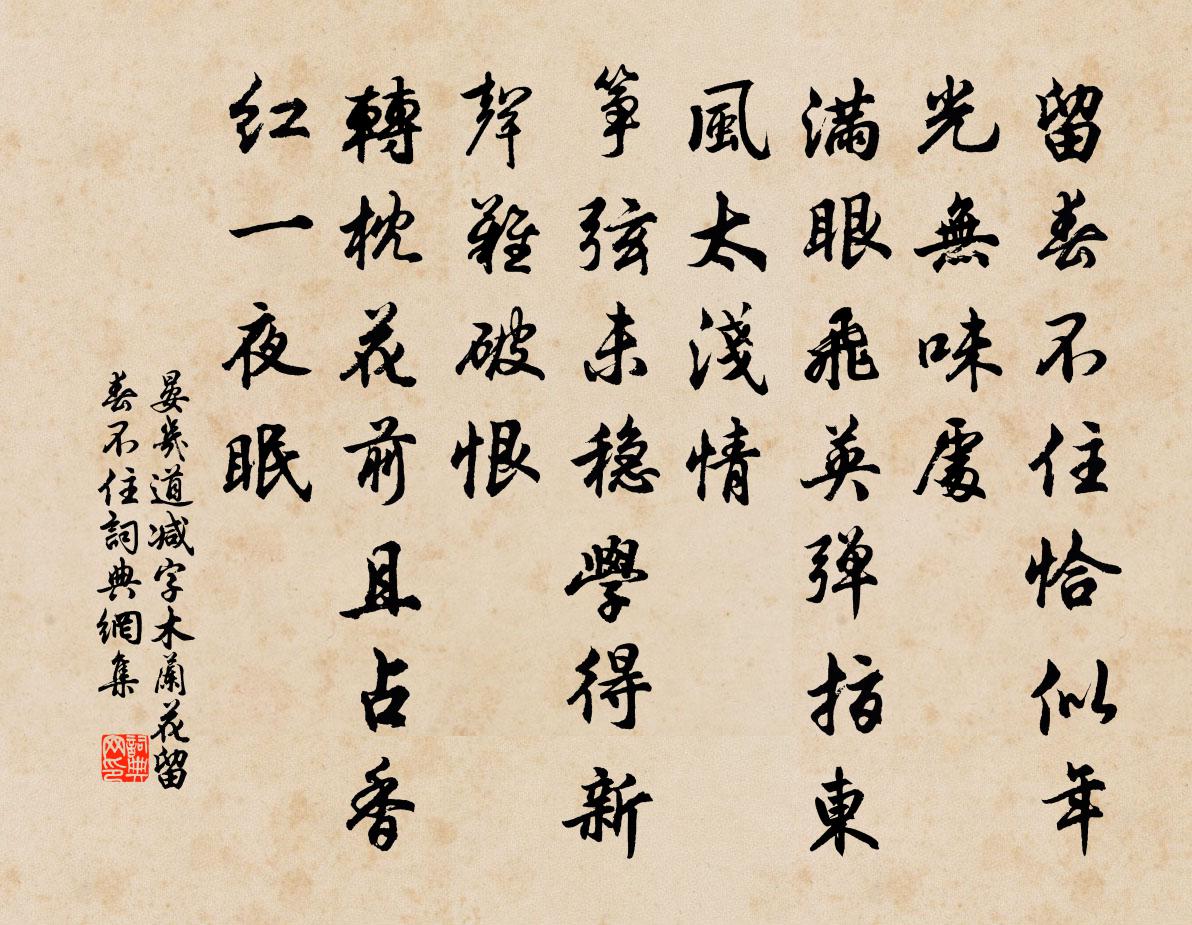 留春不住恰似年
光無味處
滿眼飛英彈指東
風太淺情
箏弦未穩學得新
聲難破恨
轉枕花前且占香
紅一夜眠
晏幾道減字木蘭花留
春不住詞典網集
詞典
网印